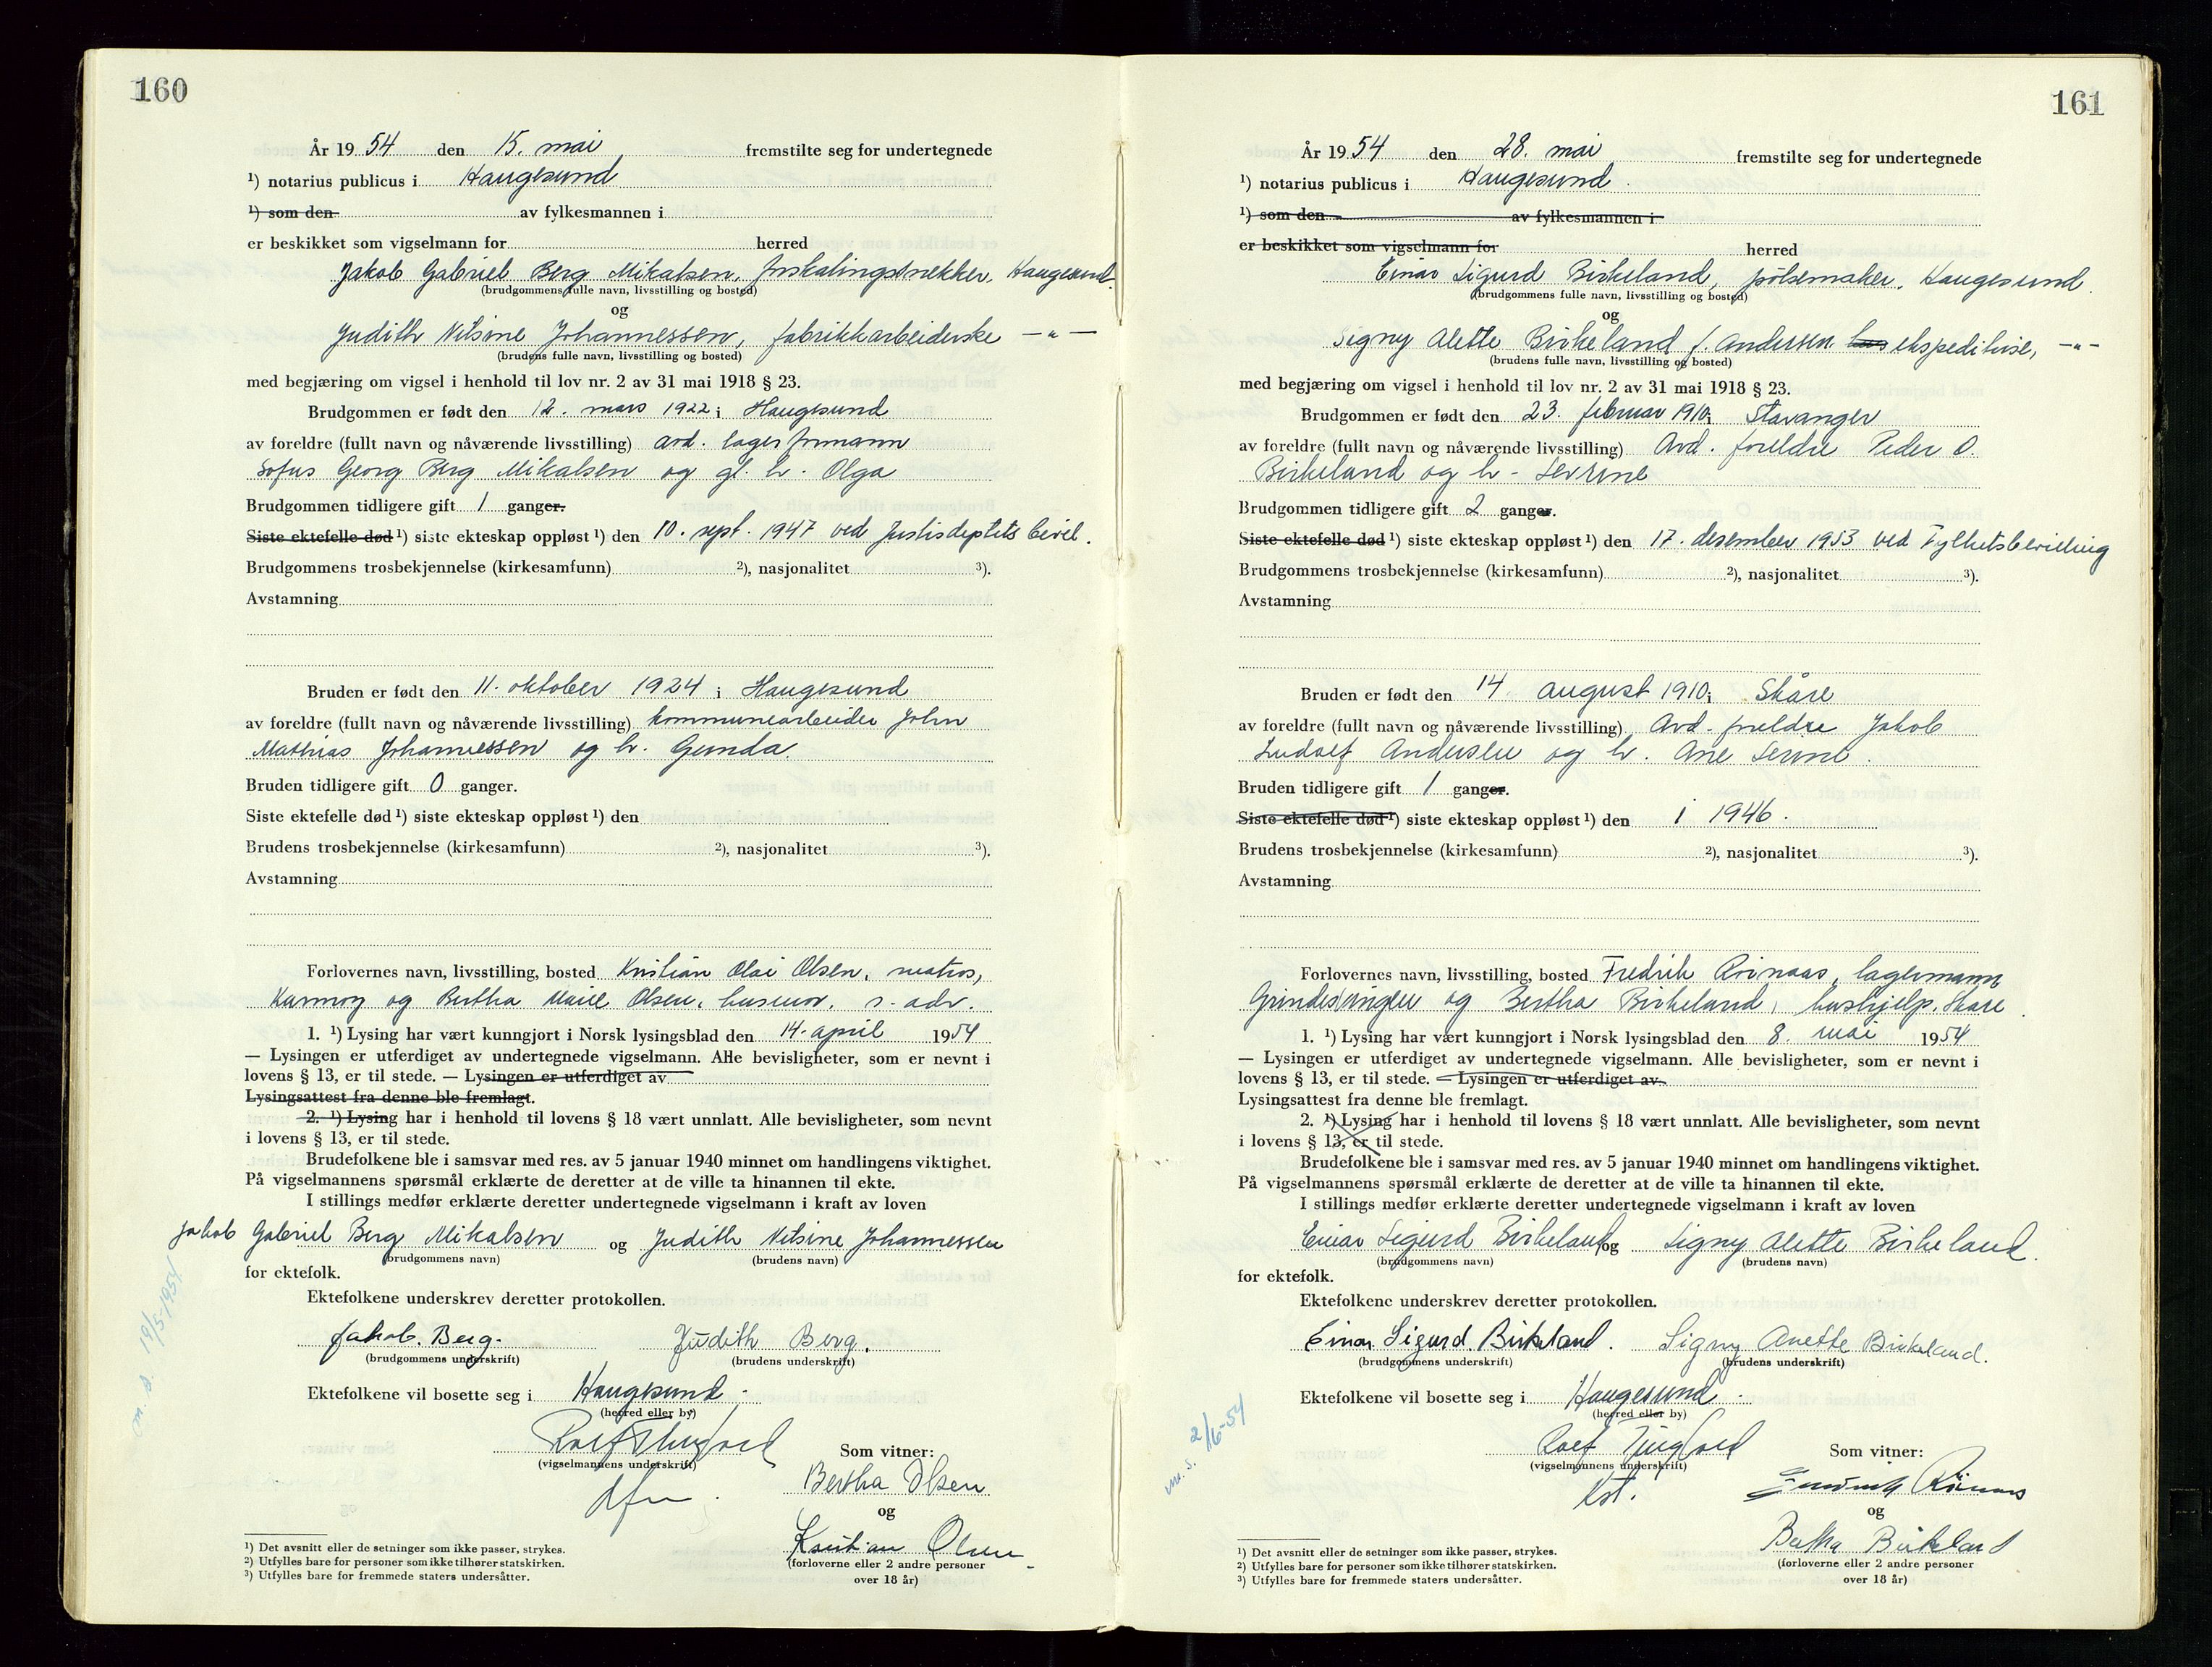 160
År 1954 den 15. mai fremstilte seg for undertegnede
¹) notarius publicus i Haugesund
¹) som den av fylkesmannen i
er beskikket som vigselmann for herred
Jakob Gabriel Berg Mikalsen, Haugesund
(brudgommens fulle navn, livsstilling og bosted)
og
Judith Nilsine Johannessen, fabrikkarbeiderske —"—
(brudens fulle navn, livsstilling og bosted)
med begjæring om vigsel i henhold til lov nr. 2 av 31 mai 1918 § 23.
Brudgommen er født den 12. mars 1922 i Haugesund
av foreldre (fullt navn og nåværende livsstilling) avd. lagerformann
Sofus Georg Berg Mikalsen og gl. h. Olga
Brudgommen tidligere gift 1 ganger.
Siste ektefelle død ¹) siste ekteskap oppløst ¹) den 10. sept. 1947 ved Justisdeptets bevil.
Brudgommens trosbekjennelse (kirkesamfunn) ²), nasjonalitet ³).
Avstamning
Bruden er født den 11. oktober 1924 i Haugesund
av foreldre (fullt navn og nåværende livsstilling) kommunearbeider John
Mathias Johannessen og h. Gunda.
Bruden tidligere gift 0 ganger.
Siste ektefelle død ¹) siste ekteskap oppløst ¹) den
Brudens trosbekjennelse (kirkesamfunn) ²), nasjonalitet ³).
Avstamning
Forlovernes navn, livsstilling, bosted Kristian Olai Olsen, matros,
Karmøy og Bertha Marie Olsen, husmor, s. adr.
1. ¹) Lysing har vært kunngjort i Norsk lysingsblad den 14. april 1954
— Lysingen er utferdiget av undertegnede vigselmann. Alle bevisligheter, som er nevnt i
lovens § 13, er til stede. — Lysingen er utferdiget av
Lysingsattest fra denne ble fremlagt.
2. ¹) Lysing har i henhold til lovens § 18 vært unnlatt. Alle bevisligheter, som nevnt
i lovens § 13, er til stede.
Brudefolkene ble i samsvar med res. av 5 januar 1940 minnet om handlingens viktighet.
På vigselmannens spørsmål erklærte de deretter at de ville ta hinannen til ekte.
I stillings medfør erklærte deretter undertegnede vigselmann i kraft av loven
Jakob Gabriel Berg Mikalsen og Judith Nilsine Johannessen
(brudgommens navn) (brudens navn)
for ektefolk.
Ektefolkene underskrev deretter protokollen.
Jakob. Berg. Judith Berg.
(brudgommens underskrift) (brudens underskrift)
Ektefolkene vil bosette seg i Haugesund.
(herred eller by)
m. s. 19/5-1954
Som vitner:
(vigselmannens underskrift)
Bertha Olsen
og
Kristian Olsen
(forloverne eller 2 andre personer
over 18 år)
¹) Det avsnitt eller de setninger som ikke passer, strykes.
²) Utfylles bare for personer som ikke tilhører statskirken.
³) Utfylles bare for fremmede staters undersåtter.
161
År 1954 den 28. mai fremstilte seg for undertegnede
¹) notarius publicus i Haugesund.
¹) som den av fylkesmannen i
er beskikket som vigselmann for herred
Einar Sigurd Birkeland, pølsemaker, Haugesund.
(brudgommens fulle navn, livsstilling og bosted)
og
Signy Alette Birkeland f. Andersen ekspeditrise, —"—
(brudens fulle navn, livsstilling og bosted)
med begjæring om vigsel i henhold til lov nr. 2 av 31 mai 1918 § 23.
Brudgommen er født den 23. februar 1910 i Stavanger
av foreldre (fullt navn og nåværende livsstilling) Avd. foreldre Peder O.
Birkeland og h. Serine
Brudgommen tidligere gift 2 ganger.
Siste ektefelle død ¹) siste ekteskap oppløst ¹) den 17. desember 1953 ved Fylketsbevilling
Brudgommens trosbekjennelse (kirkesamfunn) ²), nasjonalitet ³).
Avstamning
Bruden er født den 14 august 1910 i Skåre
av foreldre (fullt navn og nåværende livsstilling) Avd. foreldre Jakob
Ludolf Andersen og h. Ane
Bruden tidligere gift 1 ganger.
Siste ektefelle død ¹) siste ekteskap oppløst ¹) den i 1946.
Brudens trosbekjennelse (kirkesamfunn) ²), nasjonalitet ³).
Avstamning
Forlovernes navn, livsstilling, bosted Fredrik lagermann
og Bertha Birkeland, hushjelp, Skåre.
1. ¹) Lysing har vært kunngjort i Norsk lysingsblad den 8. mai 1954
— Lysingen er utferdiget av undertegnede vigselmann. Alle bevisligheter, som er nevnt i
lovens § 13, er til stede. — Lysingen er utferdiget av
Lysingsattest fra denne ble fremlagt.
2. ¹) Lysing har i henhold til lovens § 18 vært unnlatt. Alle bevisligheter, som nevnt
i lovens § 13, er til stede.
Brudefolkene ble i samsvar med res. av 5 januar 1940 minnet om handlingens viktighet.
På vigselmannens spørsmål erklærte de deretter at de ville ta hinannen til ekte.
I stillings medfør erklærte deretter undertegnede vigselmann i kraft av loven
Einar Sigurd Birkeland og Signy Alette Birkeland.
(brudgommens navn) (brudens navn)
for ektefolk.
Ektefolkene underskrev deretter protokollen.
Einar Sigurd Birkeland. Signy Anette Birkeland.
(brudgommens underskrift) (brudens underskrift)
Ektefolkene vil bosette seg i Haugesund.
(herred eller by)
m. s. 2/6-54
Rolf Som vitner:
(vigselmannens underskrift)
Kst.
og
Bertha Birkeland
(forloverne eller 2 andre personer
over 18 år)
¹) Det avsnitt eller de setninger som ikke passer, strykes.
²) Utfylles bare for personer som ikke tilhører statskirken.
³) Utfylles bare for fremmede staters undersåtter.